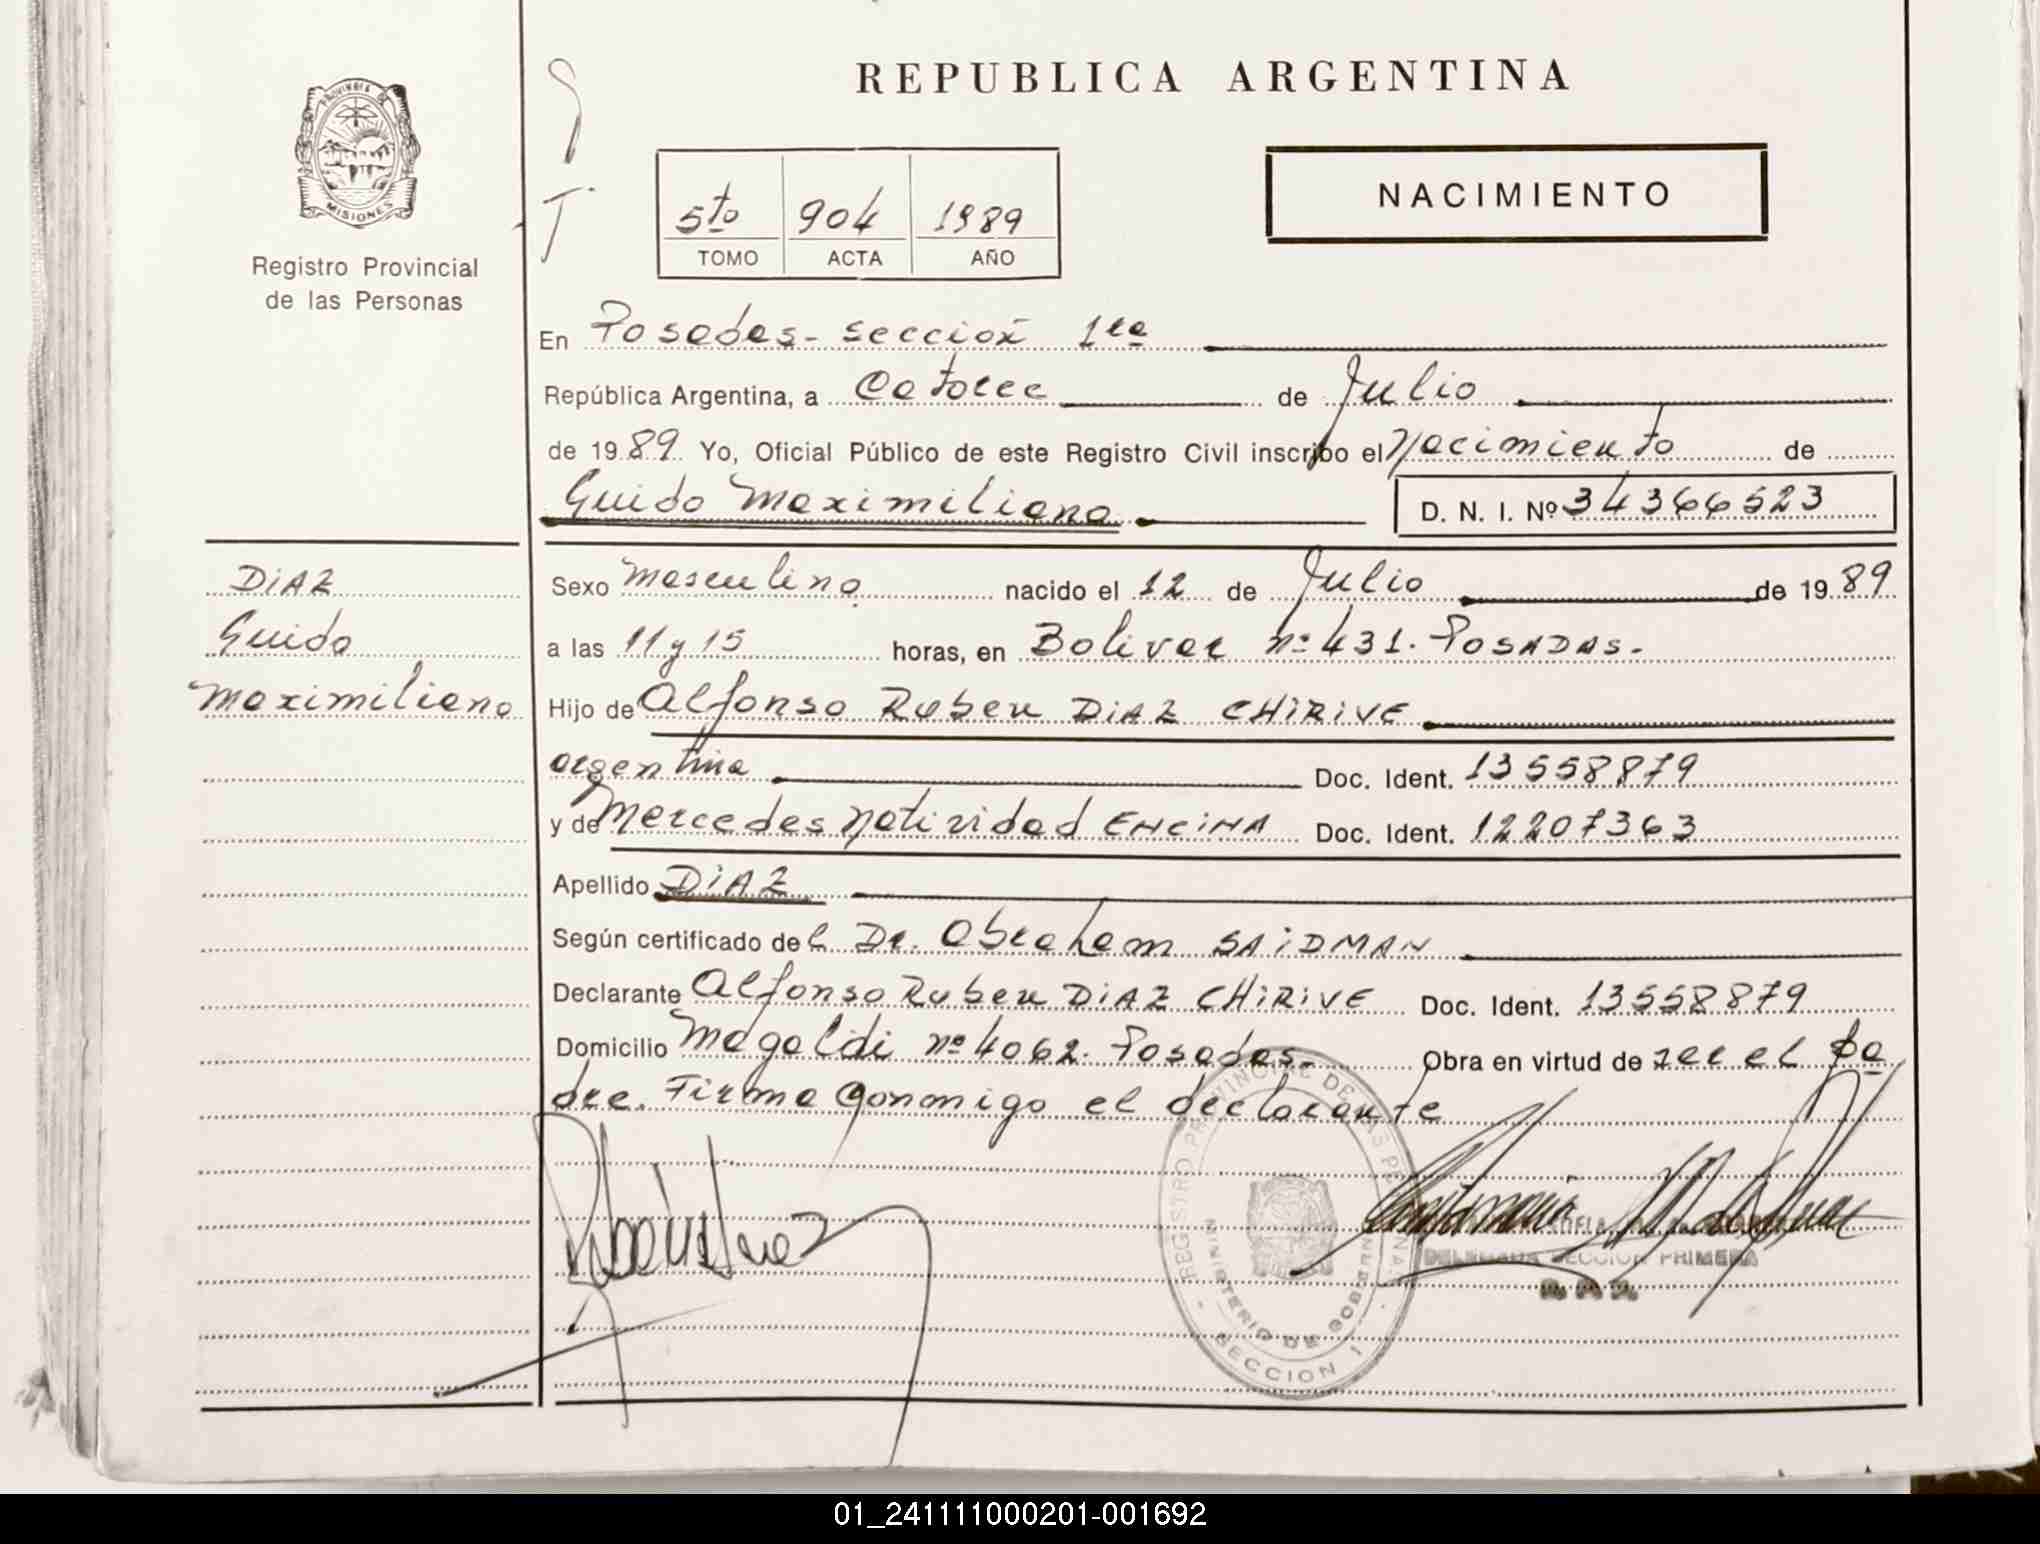 REPUBLICA ARGENTINA
PROVINCIA DE
MISIONES
Registro Provincial
de las Personas
NACIMIENTO
5to 904 1989
TOMO ACTA AÑO
En Posadas - Sección 1ra
República Argentina, a Catorce de Julio
de 1989 Yo, Oficial Público de este Registro Civil inscribo el Nacimiento de
Guido Maximiliano D. N. I. Nº 34366523
DIAZ
Guido
Maximiliano
Sexo Masculino nacido el 12 de Julio de 1989
a las 11 y 15 horas, en Bolivar nº 431. POSADAS.
Hijo de Alfonso Ruben DIAZ CHIRIVE
argentina Doc. Ident. 13558879
y de Mercedes Natividad ENCINA Doc. Ident. 12207363
Apellido DIAZ
Según certificado del Dr. Abraham SAIDMAN
Declarante Alfonso Ruben DIAZ CHIRIVE Doc. Ident. 13558879
Domicilio Magaldi nº 4062. Posadas. Obra en virtud de ser el pa
dre. Firma Conmigo el declarante
REGISTRO PROVINCIAL DE LAS PERSONAS
MINISTERIO DE GOBIERNO
SECCION 1
DELEGADA SECCION PRIMERA
01_241111000201-001692